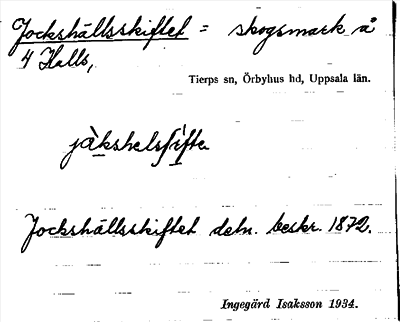 Jockshällsskiftet = skogsmark å
4 Halls,
Tierps sn, Örbyhus hd, Uppsala län.
Jockshällsskiftet detn. beskr. 1872.
Ingegärd Isaksson 1934.